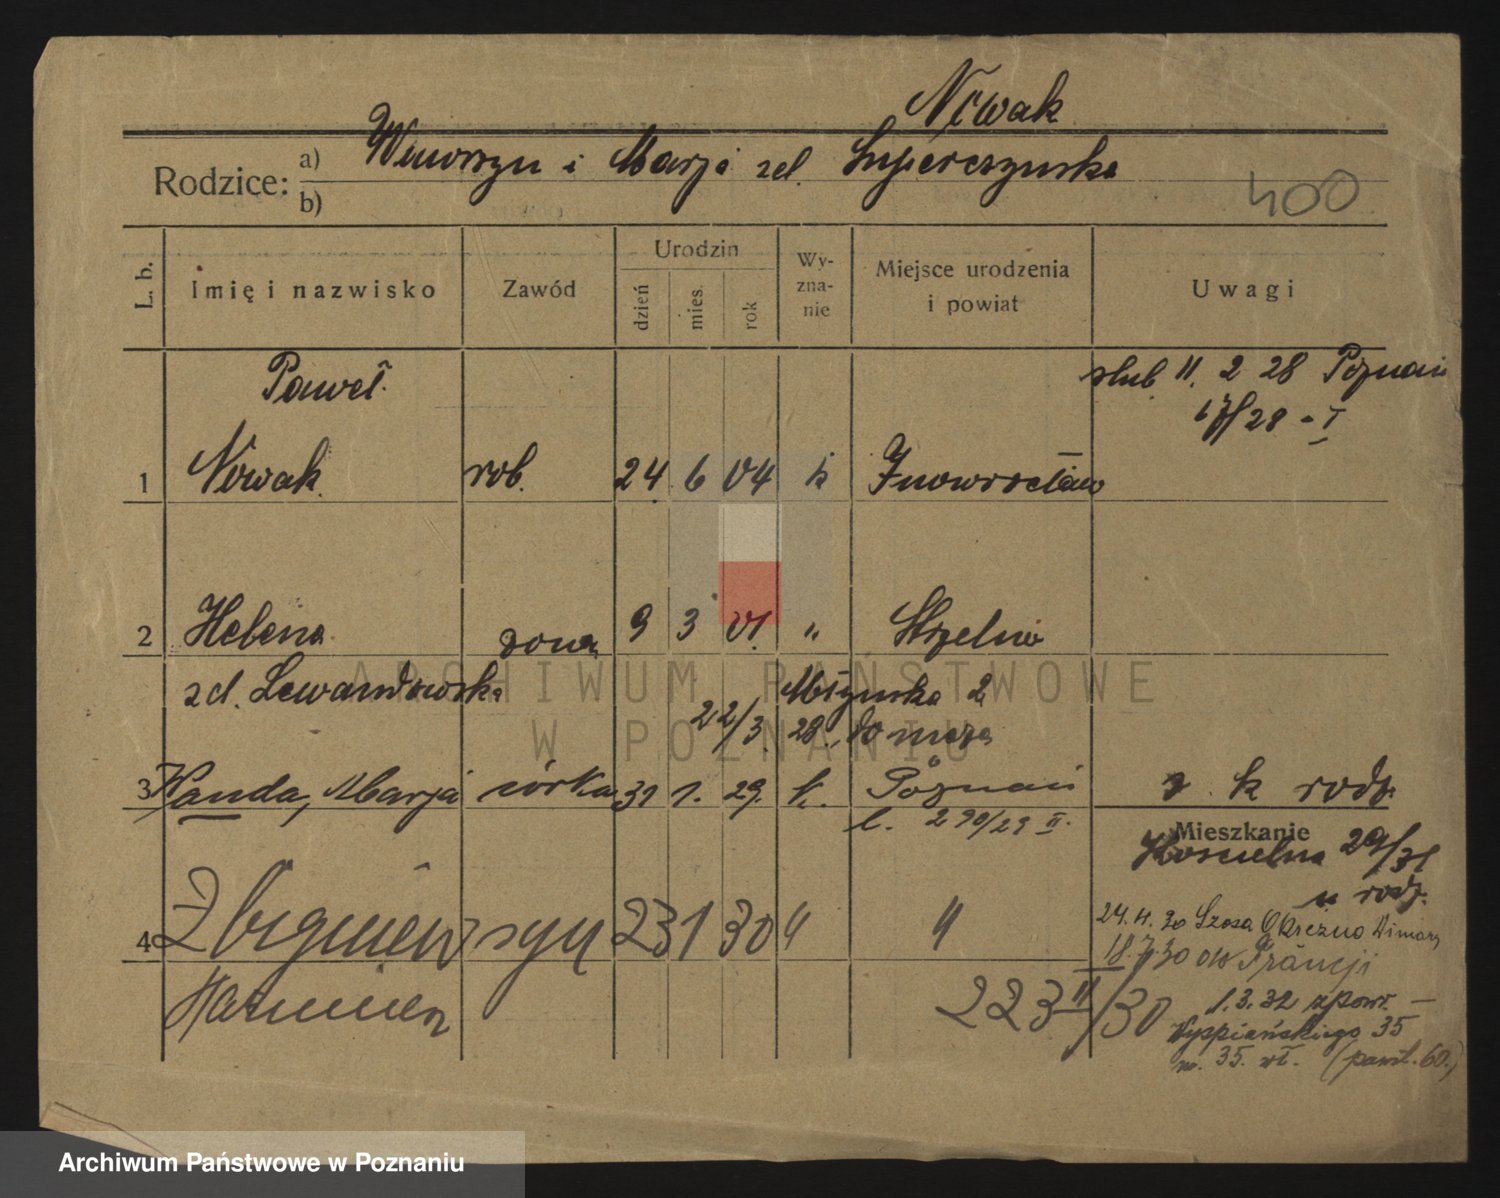 Nowak
Rodzice: a) Wawrzyn i Marja zd. Superczynska
b)
400
L. b. Imię i nazwisko Zawód Urodzin dzień mies. rok Wy-zna-nie Miejsce urodzenia i powiat Uwagi
Paweł ślub 11. 2 28 Poznań
17/28 - I
1 Nowak rob. 24 6 04 k Inowrocław
2 Helena żona 9 3 01. " Strzelno
zd. Lewandowska Młyńska 2
22/3. 28. do męża
3 Wanda, Marja córka 31 1. 29. k. Poznań k rodz.
l. 290/29 II.
Mieszkanie
29/31
u rodz.
4 Zbigniew syn 23 1 30 " "
24. 4. 30 Szosa Okrężna
18. 7. 30 do Francji
Kazimierz 223 II/30
1. 3. 32 z powr. —
Wyspiańskiego 35
m. 35. wł. (pawil. 60.)
ARCHIWUM PAŃSTWOWE
W POZNANIU
Archiwum Państwowe w Poznaniu